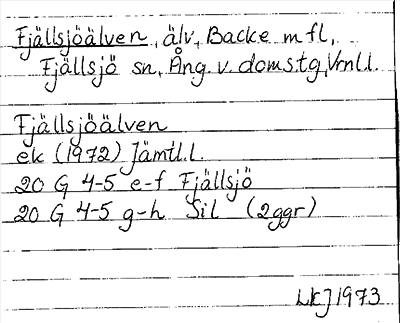 Fjällsjöälven, älv, Backe m fl,
Fjällsjö sn, Ång. v. domstg, Vrnl.l.
Fjällsjöälven
ek (1972) Jämtl.l.
20 G 4-5 e-f Fjällsjö
20 G 4-5 g-h Sil (2ggr)
LkJ 1973